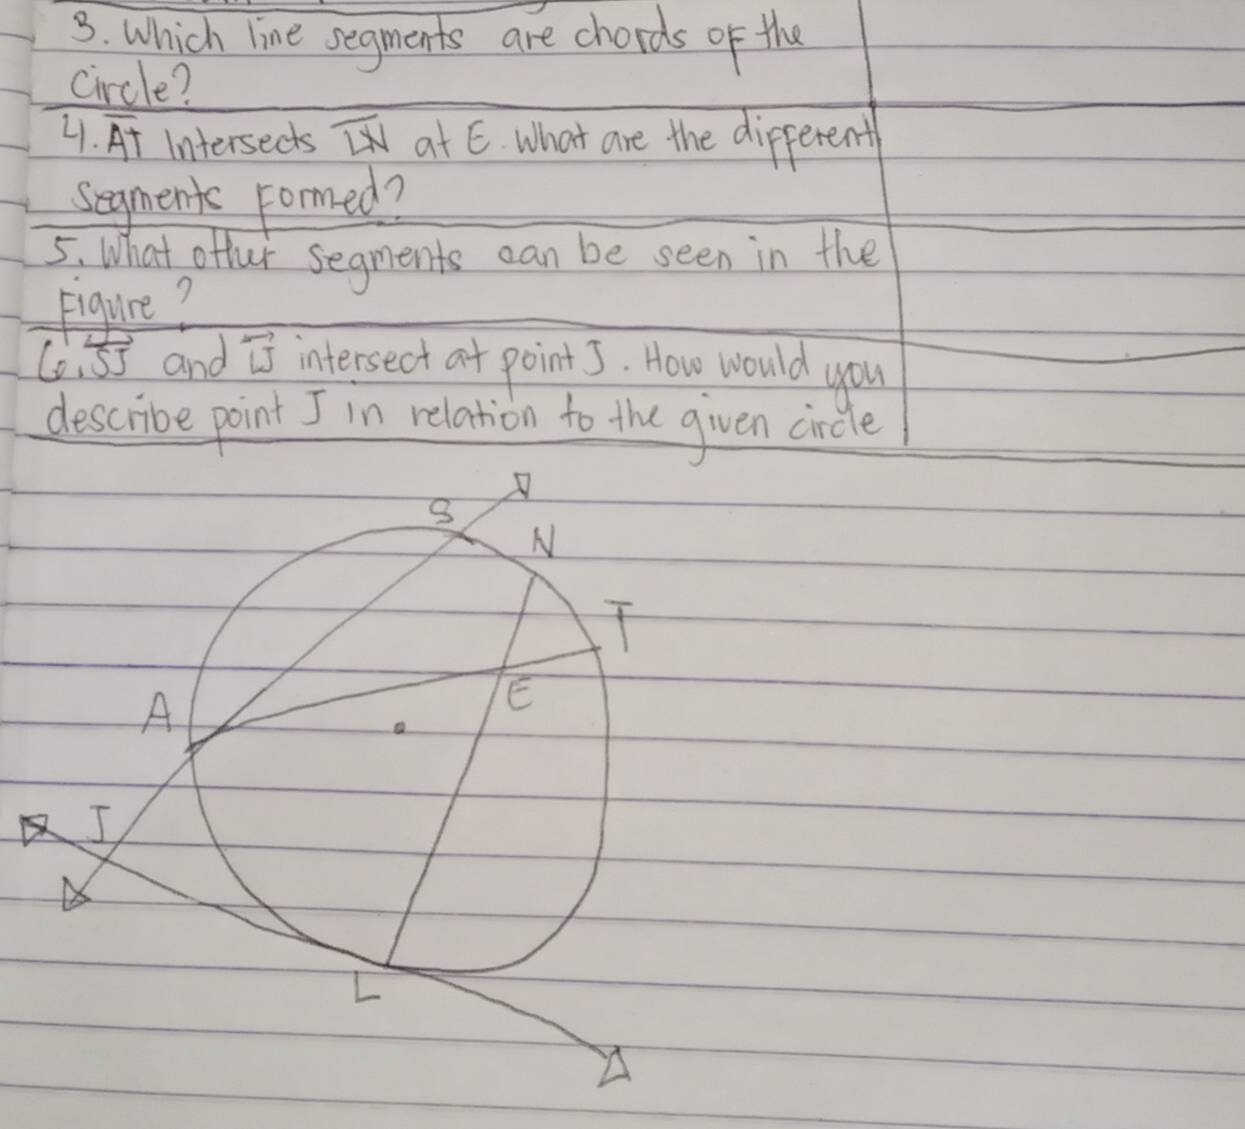 3. Which line segments are chords of the
Circle?
4. AT Intersects LN at E. What are the different
Segments Formed?
5. What other segments can be seen in the
Figure?
6. SJ and LJ intersect at point J. How would you
describe point J in relation to the given circle
S
N
T
E
A
J
L